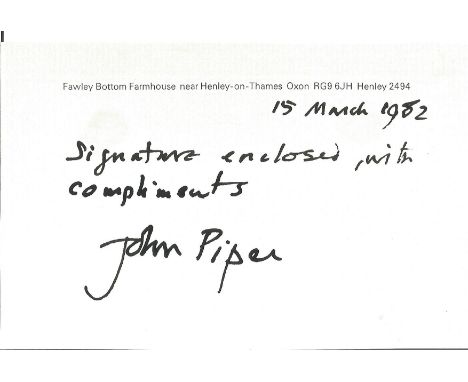 Fawley Bottom Farmhouse near Henley-on-Thames Oxon RG9 6JH Henley 2494
15 March 1982
Signature enclosed, with
compliments
John Piper